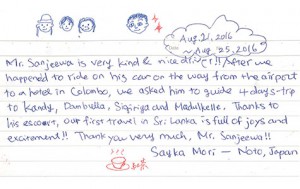 Aug.21,2016
~ Aug.25,2016
Mr. Sanjeewa is very kind & nice driver!! After we
happened to ride on his car on the way from the airport
to a hotel in Colombo, we asked him to guide 4 days-trip
to Kandy, Dambulla, Sigiriya and Madulkelle. Thanks to
his escort, our first travel in Sri Lanka is full of joys and
excitement!! Thank you very much, Mr. Sanjeewa!!
Sayka Mori — Noto, Japan